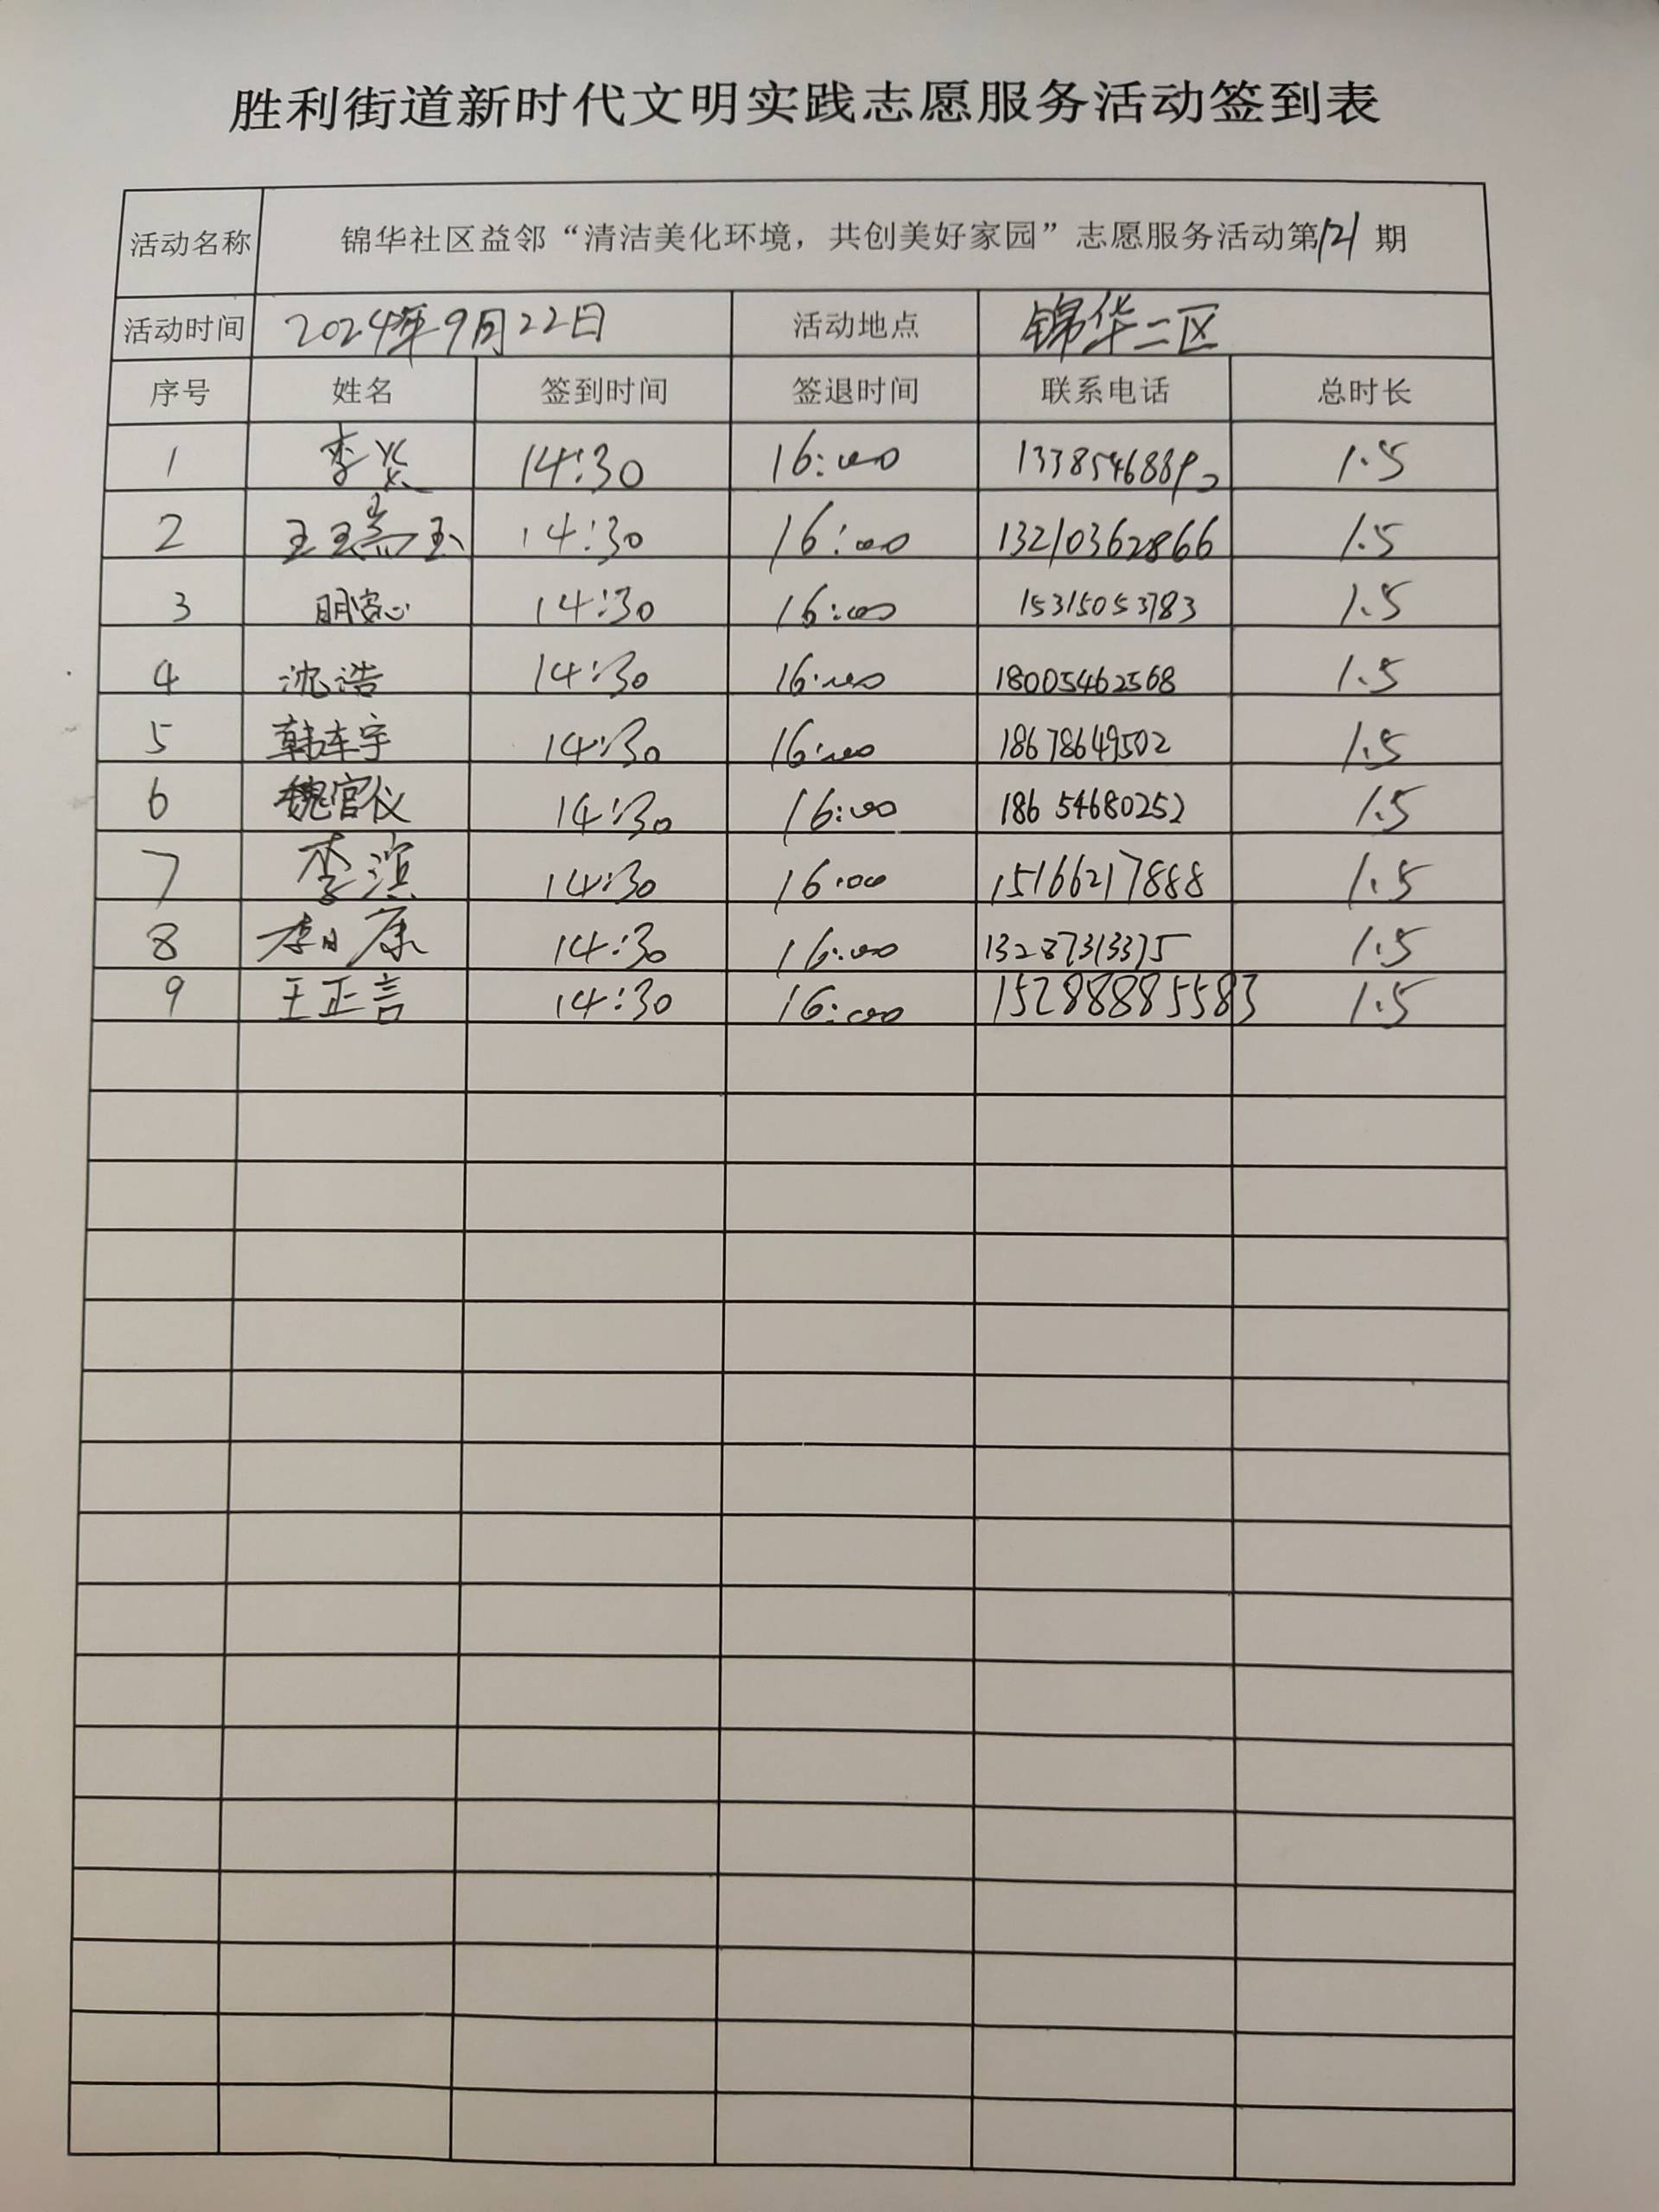 胜利街道新时代文明实践志愿服务活动签到表
活动名称 锦华社区益邻“清洁美化环境，共创美好家园”志愿服务活动第121期
活动时间 2024年9月22日 活动地点 锦华二区
序号 姓名 签到时间 签退时间 联系电话 总时长
1 李 14:30 16:00 1.5
2 王瑞玉 14:30 16:00 13210362866 1.5
3 明安心 14:30 16:00 15315053783 1.5
4 沈浩 14:30 16:00 18005462568 1.5
5 韩车宇 14:30 16:00 18678649502 1.5
6 魏官仪 14:30 16:00 18654680252 1.5
7 李滨 14:30 16:00 15166217888 1.5
8 康 14:30 16:00 13287313375 1.5
9 王正言 14:30 16:00 15288885583 1.5